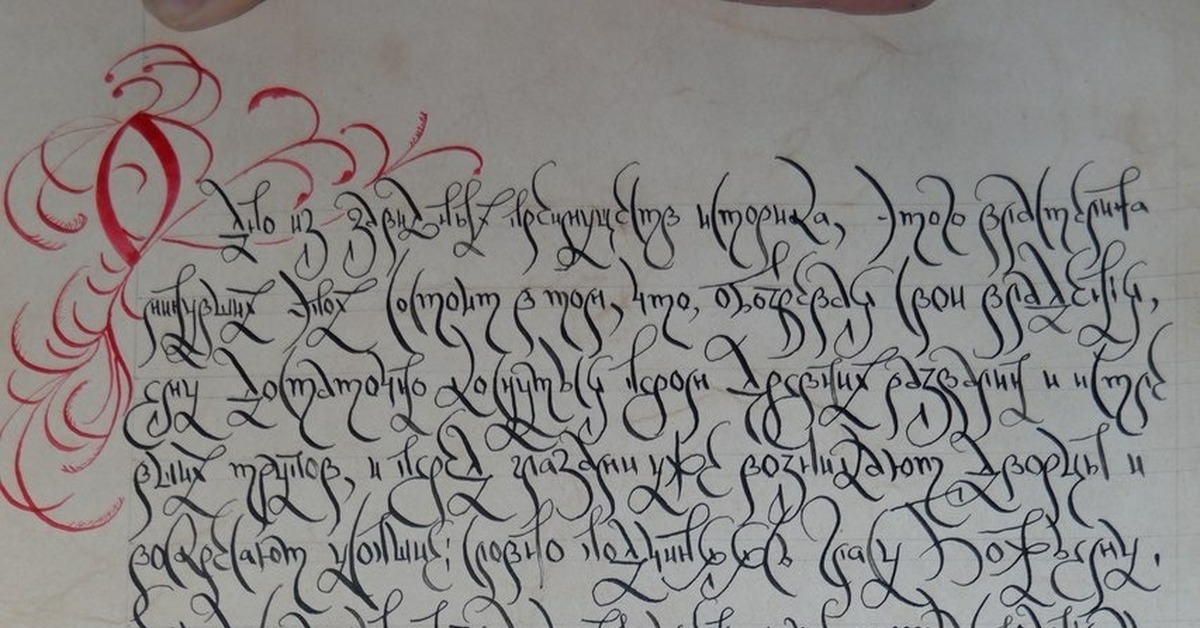 Одно из завидных преимуществ историка, этого властелина
минувших эпох состоит в том, что, обозревая свои владения,
ему достаточно коснуться пером древних развалин и истле
вших трупов, и перед глазами уже возникают дворцы и
воскресают усопшие: словно подчиняясь гласу Божьему,